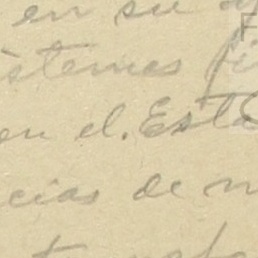 en su
istemas fi
en el Esta
cias de n